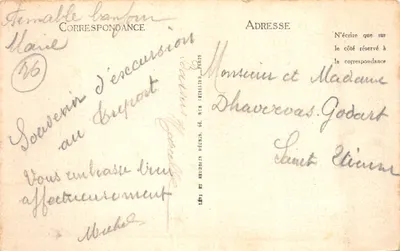 Formable bonjour
Marie
CORRESPONDANCE
26
Souvenir d'éxcursion
au Tréport
Vous embrasse bien
affectueusement
Michel
ADRESSE
N'écrire que sur
le côté réservé à
la correspondance
Monsieur et Madame
Dhavervas-Godart
Saint Etienne